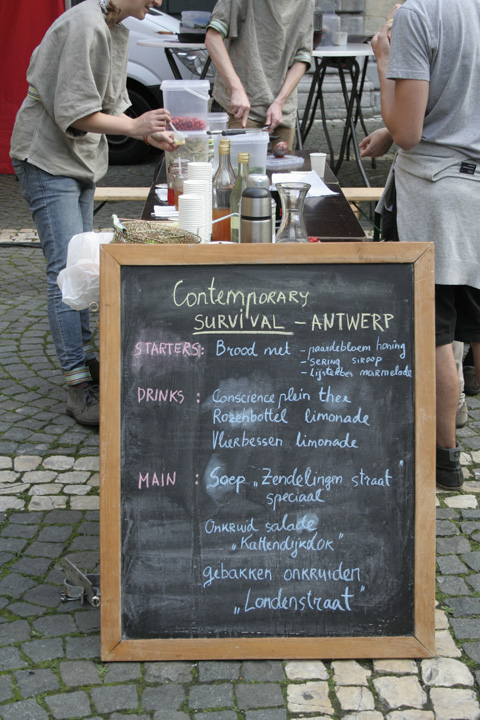 Contemporary
SURVIVAL - ANTWERP
STARTERS: Brood met - paardebloem honing
- sering siroop
- lijsterbes marmelade
DRINKS : Conscienceplein thee
Rozenbottel limonade
Vlierbessen limonade
MAIN : Soep "Zendelingen straat"
speciaal
Onkruid salade
"Kattendijkdok"
gebakken onkruiden
"Londenstraat"